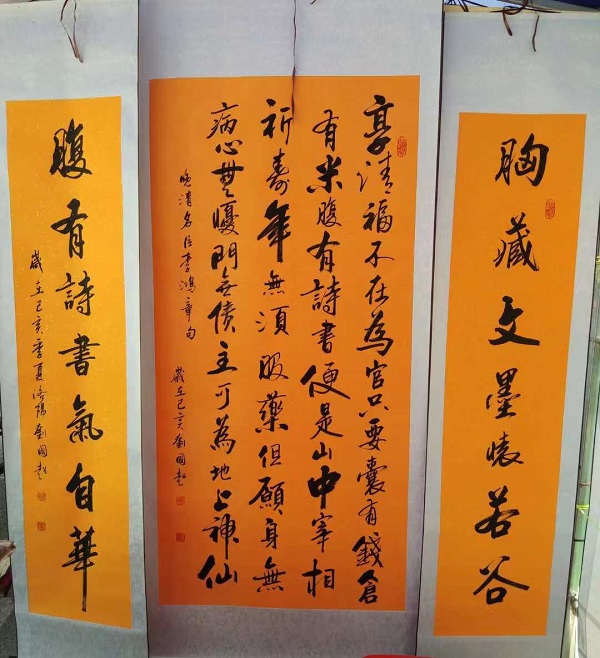 胸藏文墨懷若谷
享清福不在為官只要囊有錢倉
有米腹有詩書便是山中宰相
祈壽年無須服藥但願身無
病心無憂門無債主可為地上神仙
晚清名臣李鴻章句
歲在己亥劉國超
腹有詩書氣自華
歲在己亥季夏洛陽劉國超